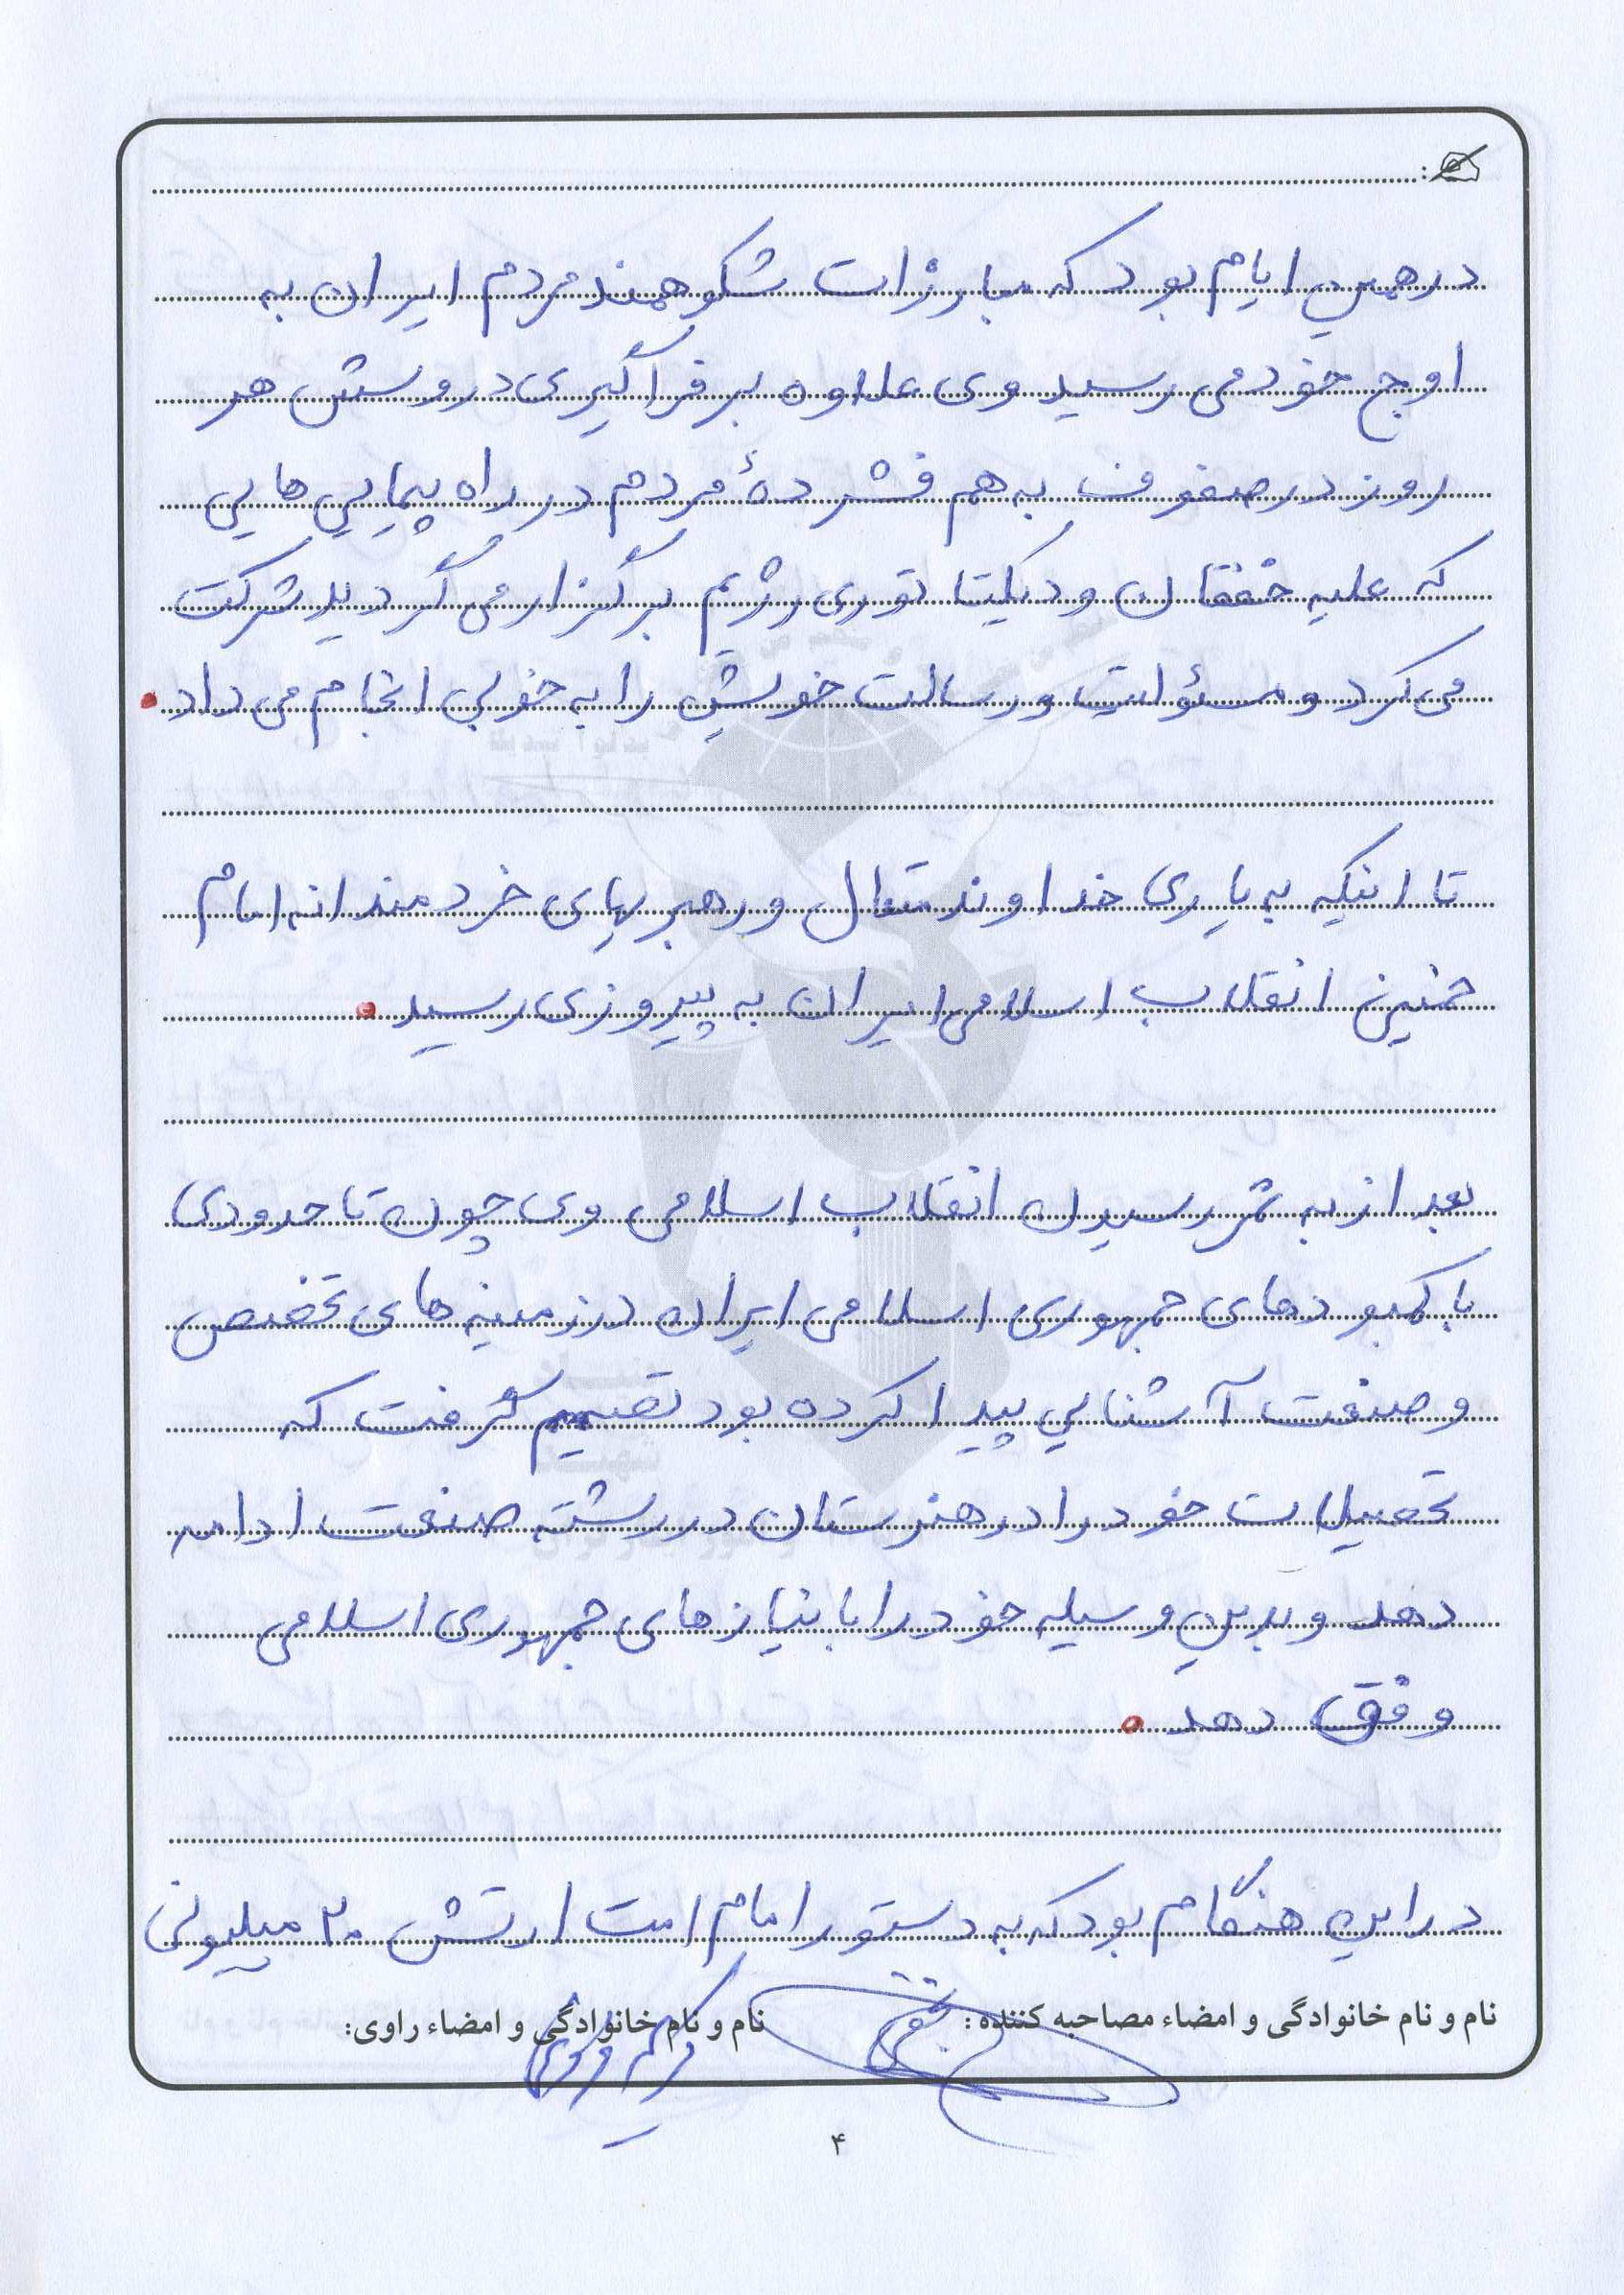 در همین ایام بود که مبارزات شکوهمند مردم ایران به
اوج خود می رسید وی علاوه بر فراگیری دروسش هر
روز در صفوف به هم فشردهٔ مردم در راه پیمایی هایی
که علیه خفقان و دیکتاتوری رژیم برگزار می گردید شرکت
می کرد و مسئولیت و رسالت خویش را به خوبی انجام می داد.
تا اینکه به یاری خداوند متعال و رهبریهای خردمندانه امام
خمینی انقلاب اسلامی ایران به پیروزی رسید.
بعد از به ثمر رسیدن انقلاب اسلامی وی چون تا حدودی
با کمبودهای جمهوری اسلامی ایران در زمینه های تخصص
و صنعت آشنایی پیدا کرده بود تصمیم گرفت که
تحصیلات خود را در هنرستان در رشته صنعت ادامه
دهد و بدین وسیله خود را با نیازهای جمهوری اسلامی
وفق دهد.
در این هنگام بود که به دستور امام امت ارتش ۲۰ میلیونی
نام و نام خانوادگی و امضاء مصاحبه کننده: نام و نام خانوادگی و امضاء راوی:
۴